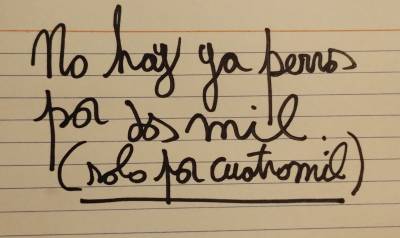 No hay ya perros
por dos mil.
(solo por cuatromil)